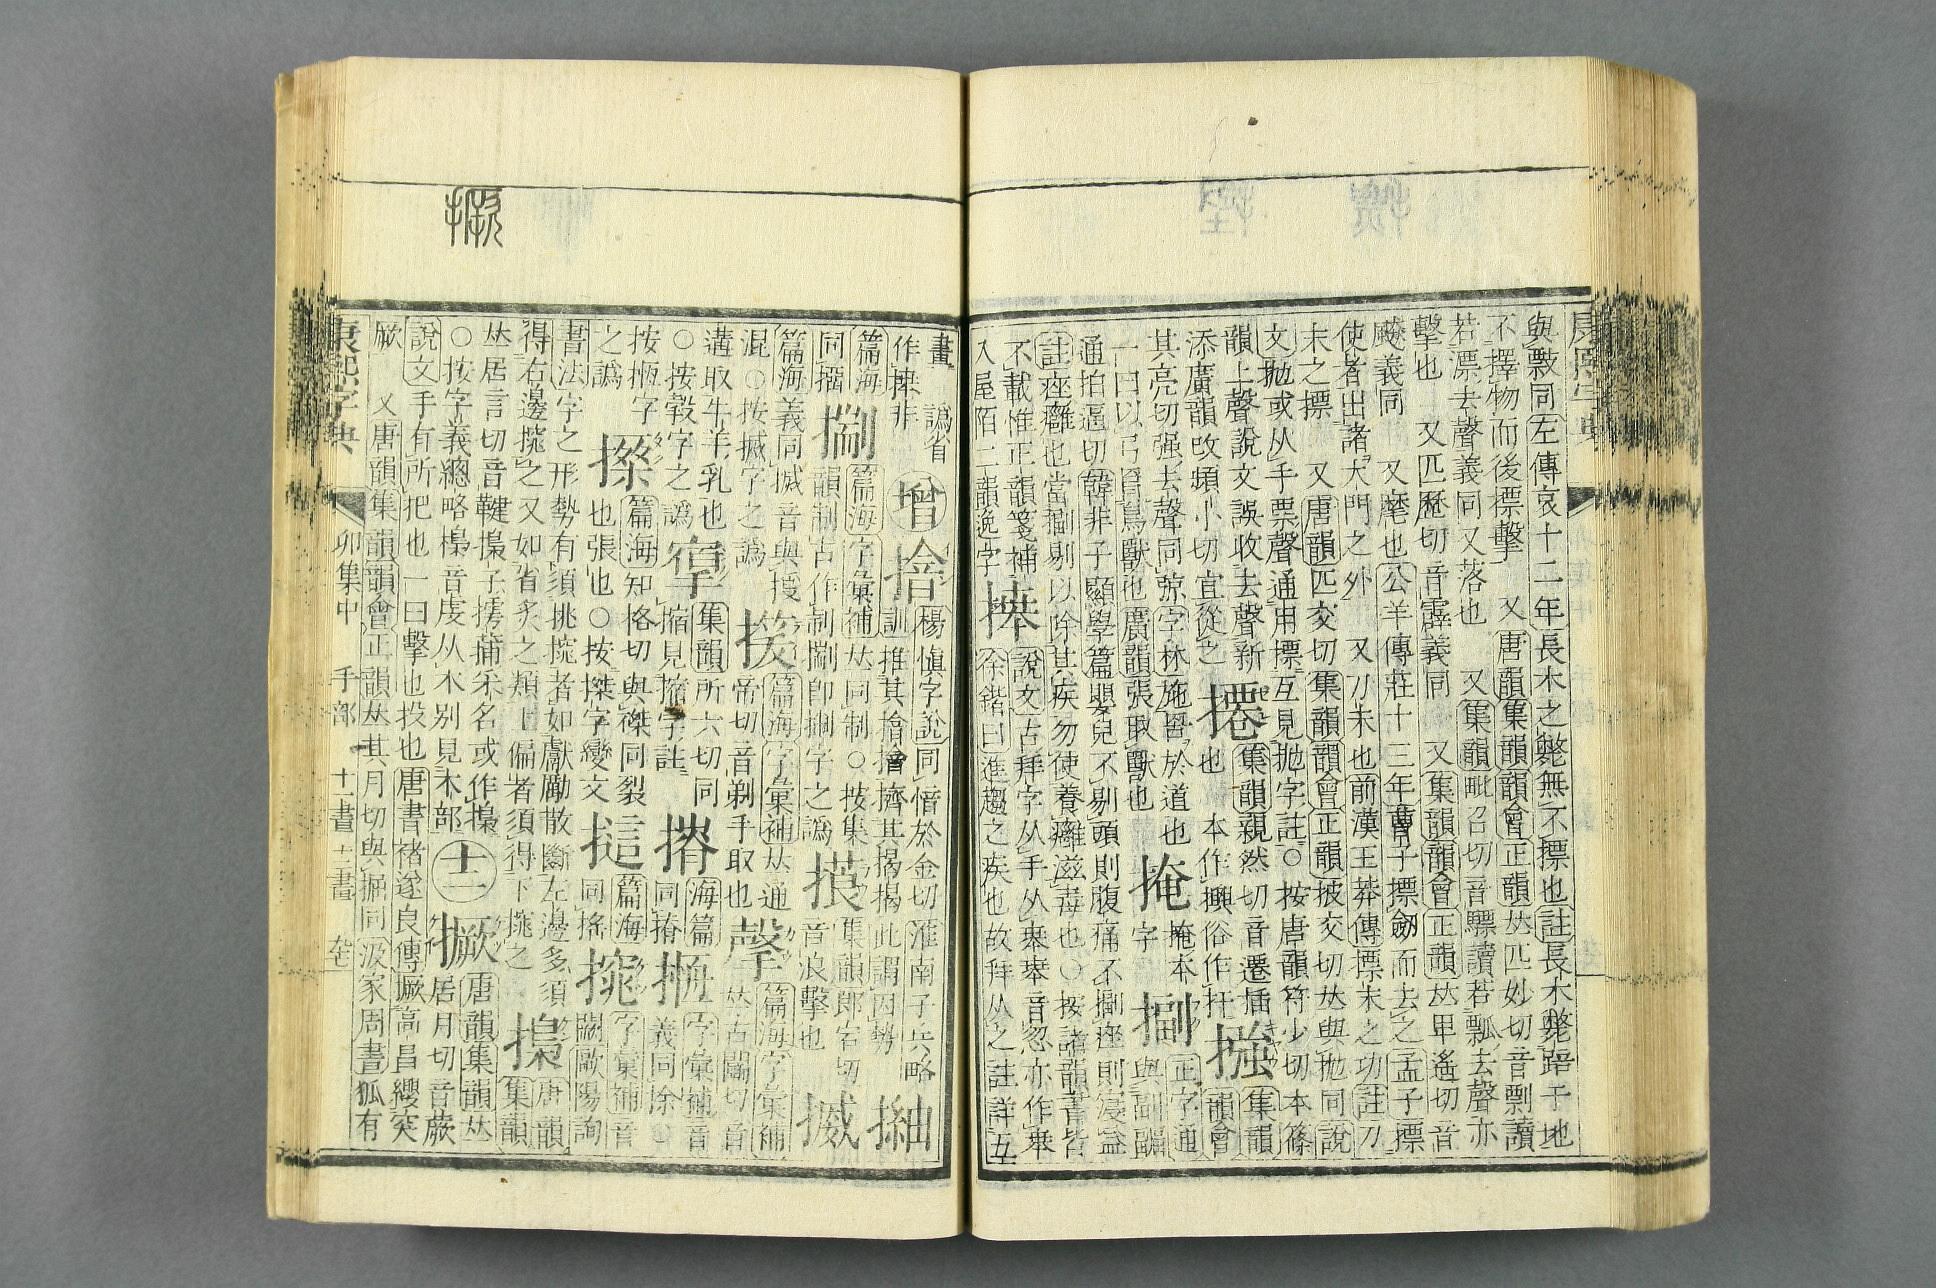 與敺同左傳哀十二年長木之斃無不摽也註長木斃踣于地
不擇物而後摽擊 又唐韻集韻韻會正韻𠀤匹妙切音剽讀
若漂去聲義同又落也 又集韻毗召切音驃讀若瓢去聲亦
擊也 又匹歷切音霹義同 又集韻韻會正韻𠀤甲遙切音
飇義同 又麾也公羊傳莊十三年曹子摽劒而去之孟子摽
使者出諸大門之外 又刀末也前漢王莽傳摽末之功註刀
末之摽 又唐韻匹交切集韻韻會正韻披交切𠀤與抛同說
文抛或从手票聲通用摽互見抛字註○按唐韻符少切本篠
韻上聲說文誤收去聲新
添廣韻改頻小切宜從之
集韻親然切音遷插
也 本作興俗作扞
集韻韻會
其亮切强去聲同
字林施罟於道也
一曰以弓罥鳥獸也廣韻張取獸也
掩本字
摑
正字通
與副
通拍逼切韓非子顯學篇嬰兒不剔頭則腹痛不㨽痤則寖益
註痤癰也當㨽剔以除其疾勿使養癰滋毒也○按諸韻書皆
不載惟正韻箋補
入屋陌二韻逸字
說文古拜字从手
徐鍇曰進趨之疾也故拜从之註詳五
畫 譌省
作捧非
增
揚慎字說同 於金切 淮南子兵略
訓推其㩒㩒擠其揭揭此謂因勢
篇海
同㨷
篇海字彙補𠀤同制○按集
韻制古作制㓡卽㨽字之譌
集韻郎宕切
音浪擊也
搣
篇海義同搣音與授
混○按搣字之譌
篇海字彙補𠀤通
帝切音剃手取也
篇海字彙補
𠀤古關切音
溝取牛羊乳也
○按㝅字之譌
集韻所六切同
摍見摍字註
海篇
同揹
字彙補音
義同除
按恆字
之譌
㩉
篇海知格切與磔同裂
也張也○按搩字變文
篇海
同搖
字彙補音
闕歐陽詢
書法字之形勢有須挑㨪者如獻勵散斷左邊多須
得右邊㨪之又如省炙之類上偏者須得下㨪之
摷
唐韻
集韻
𠀤居言切音鞬摷子摴蒱采名或作㩐
○按字義總略㮮音虔从木別見木部
十二
撅
唐韻集韻𠀤
居月切音蕨
說文手有所把也一曰擊也投也唐書褚遂良傳撅高昌纓突
厥 又唐韻集韻韻會正韻𠀤其月切與掘同汲家周書狐有
撅
康熙字典
卯集中 手部 十一畫 十二畫
康熙字典